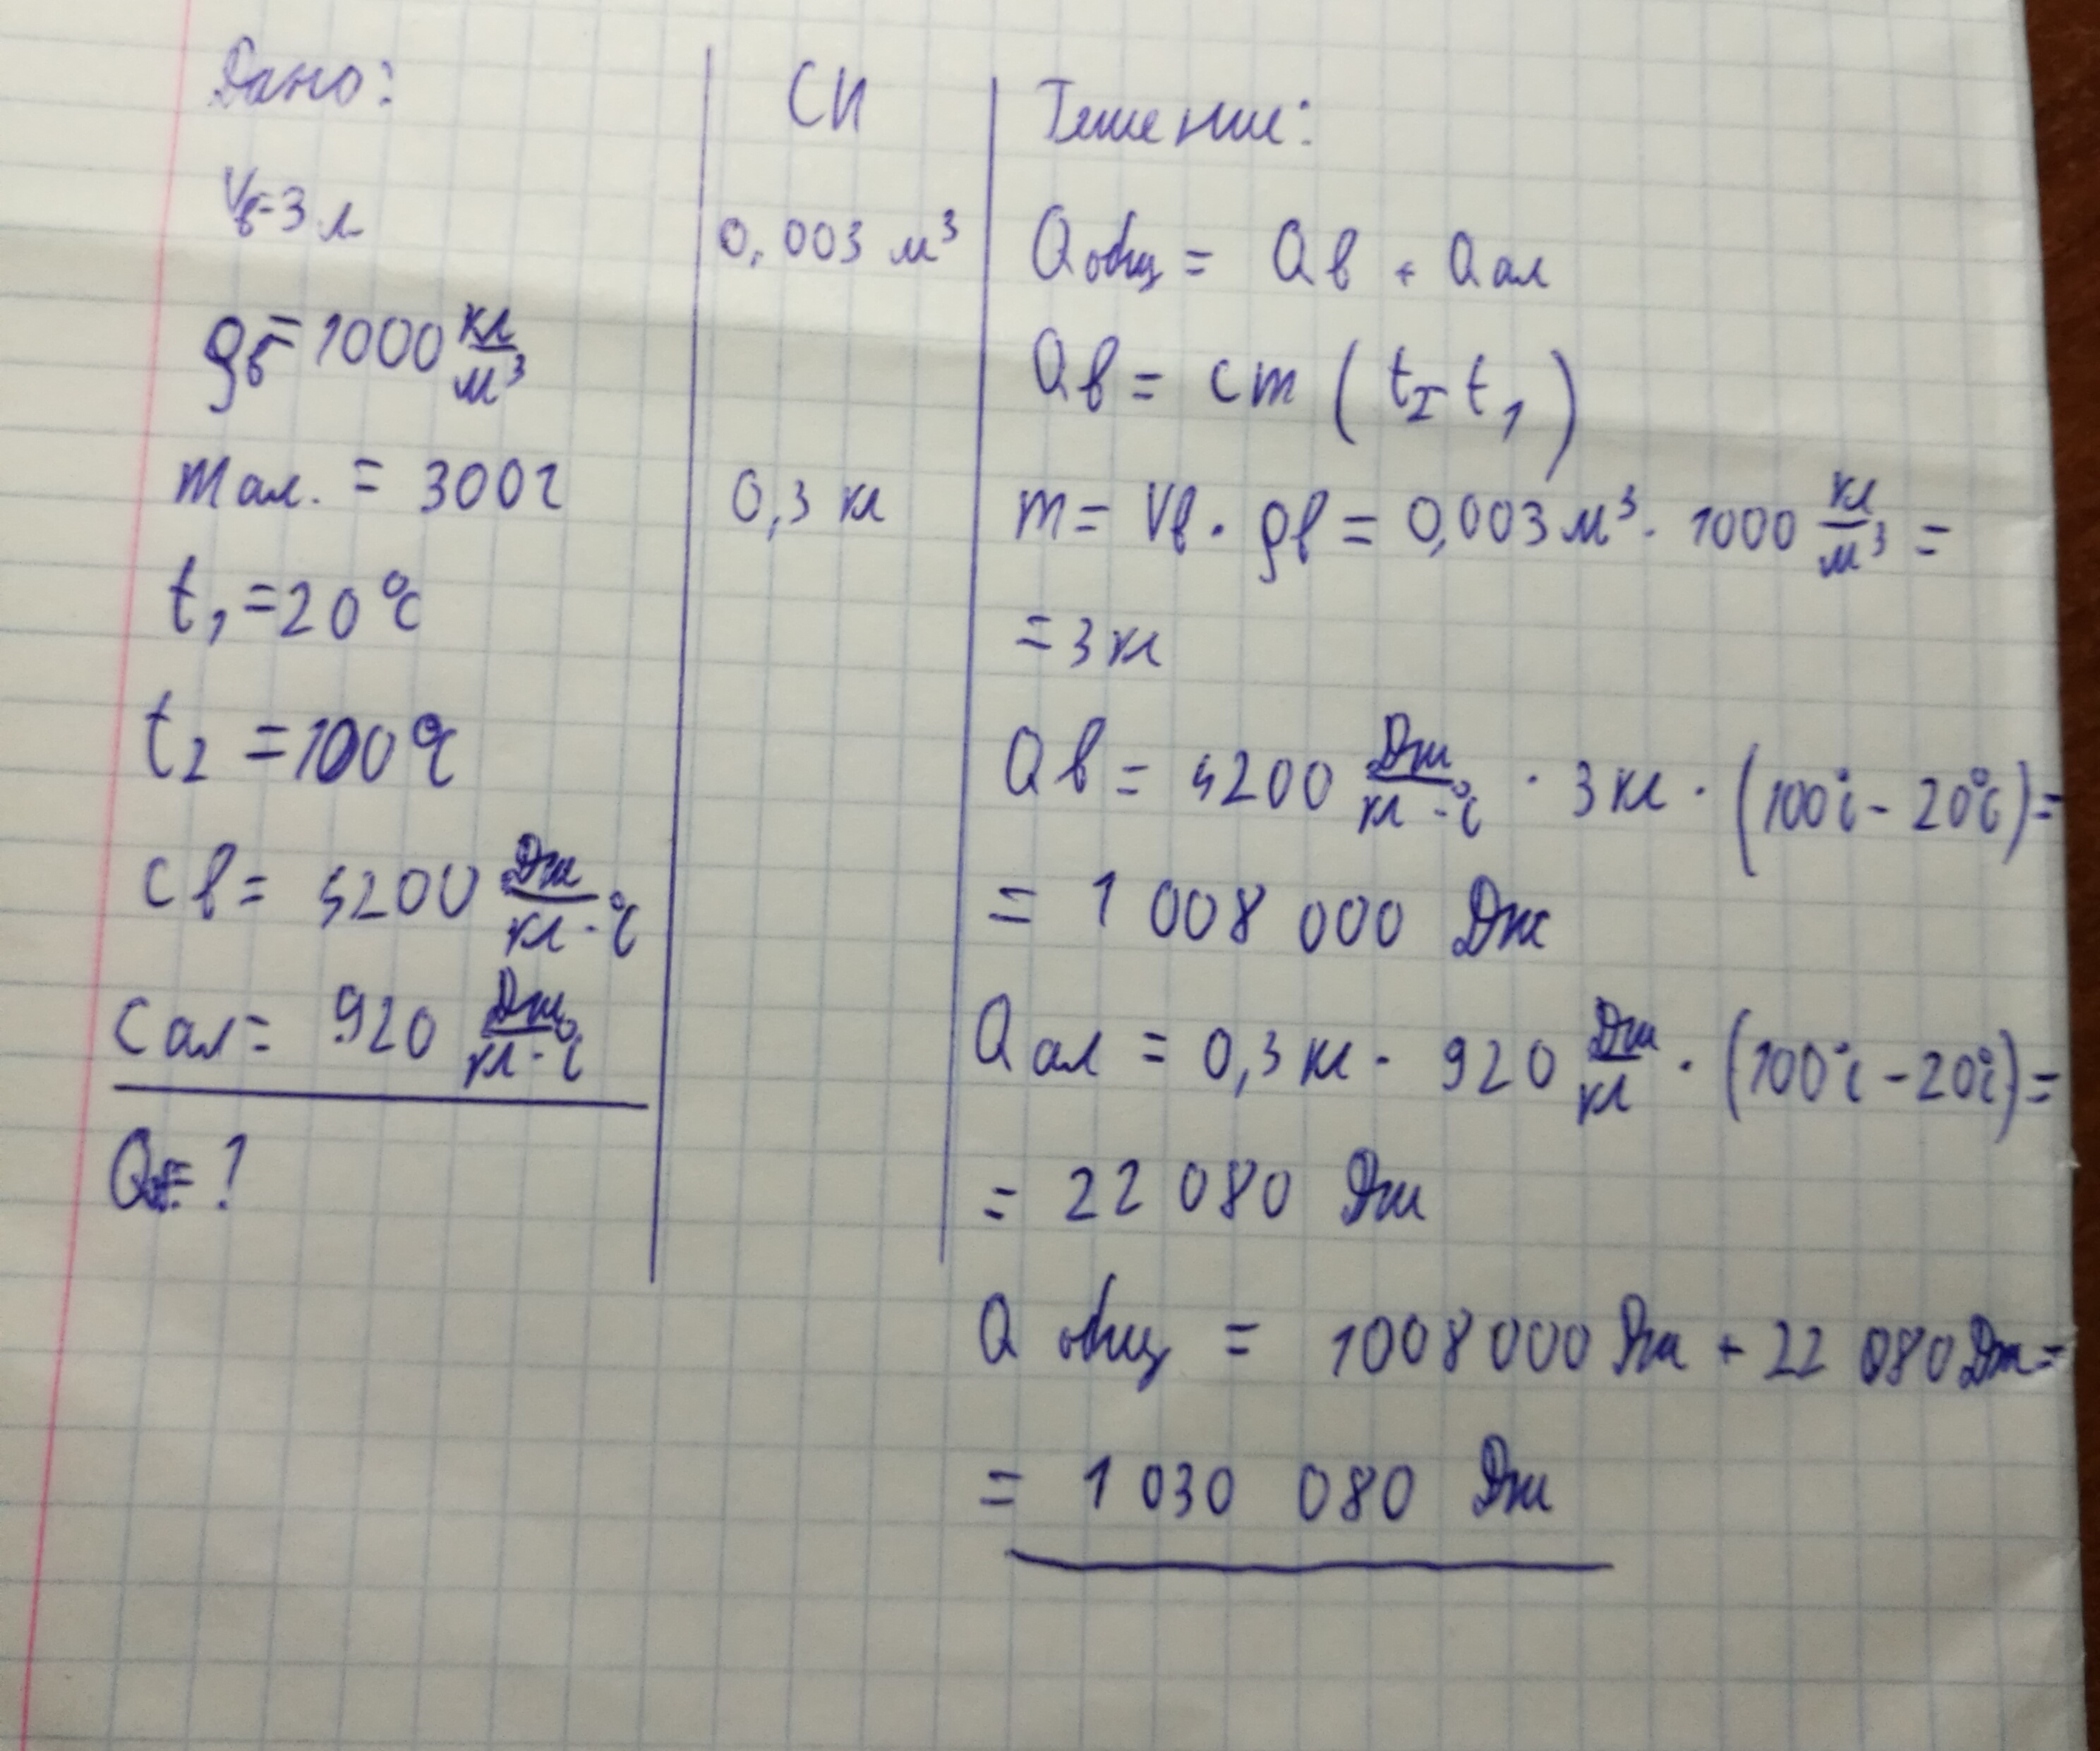 Дано:
Vв=3 л
ρв=1000 кг/м³
mал. = 300г
t₁=20°C
t₂=100°C
Cв= 4200 Дж/кг·°C
Cал= 920 Дж/кг·°C
Q=?
СИ
0,003 м³
0,3 кг
Решение:
Qобщ = Qв + Qал
Qв = cm (t₂-t₁)
m= Vв · ρв = 0,003 м³ · 1000 кг/м³ =
= 3 кг
Qв = 4200 Дж/кг·°C · 3 кг · (100°C - 20°C)=
= 1 008 000 Дж
Qал = 0,3 кг · 920 Дж/кг · (100°C - 20°C)=
= 22 080 Дж
Qобщ = 1008 000 Дж + 22 080 Дж=
= 1 030 080 Дж